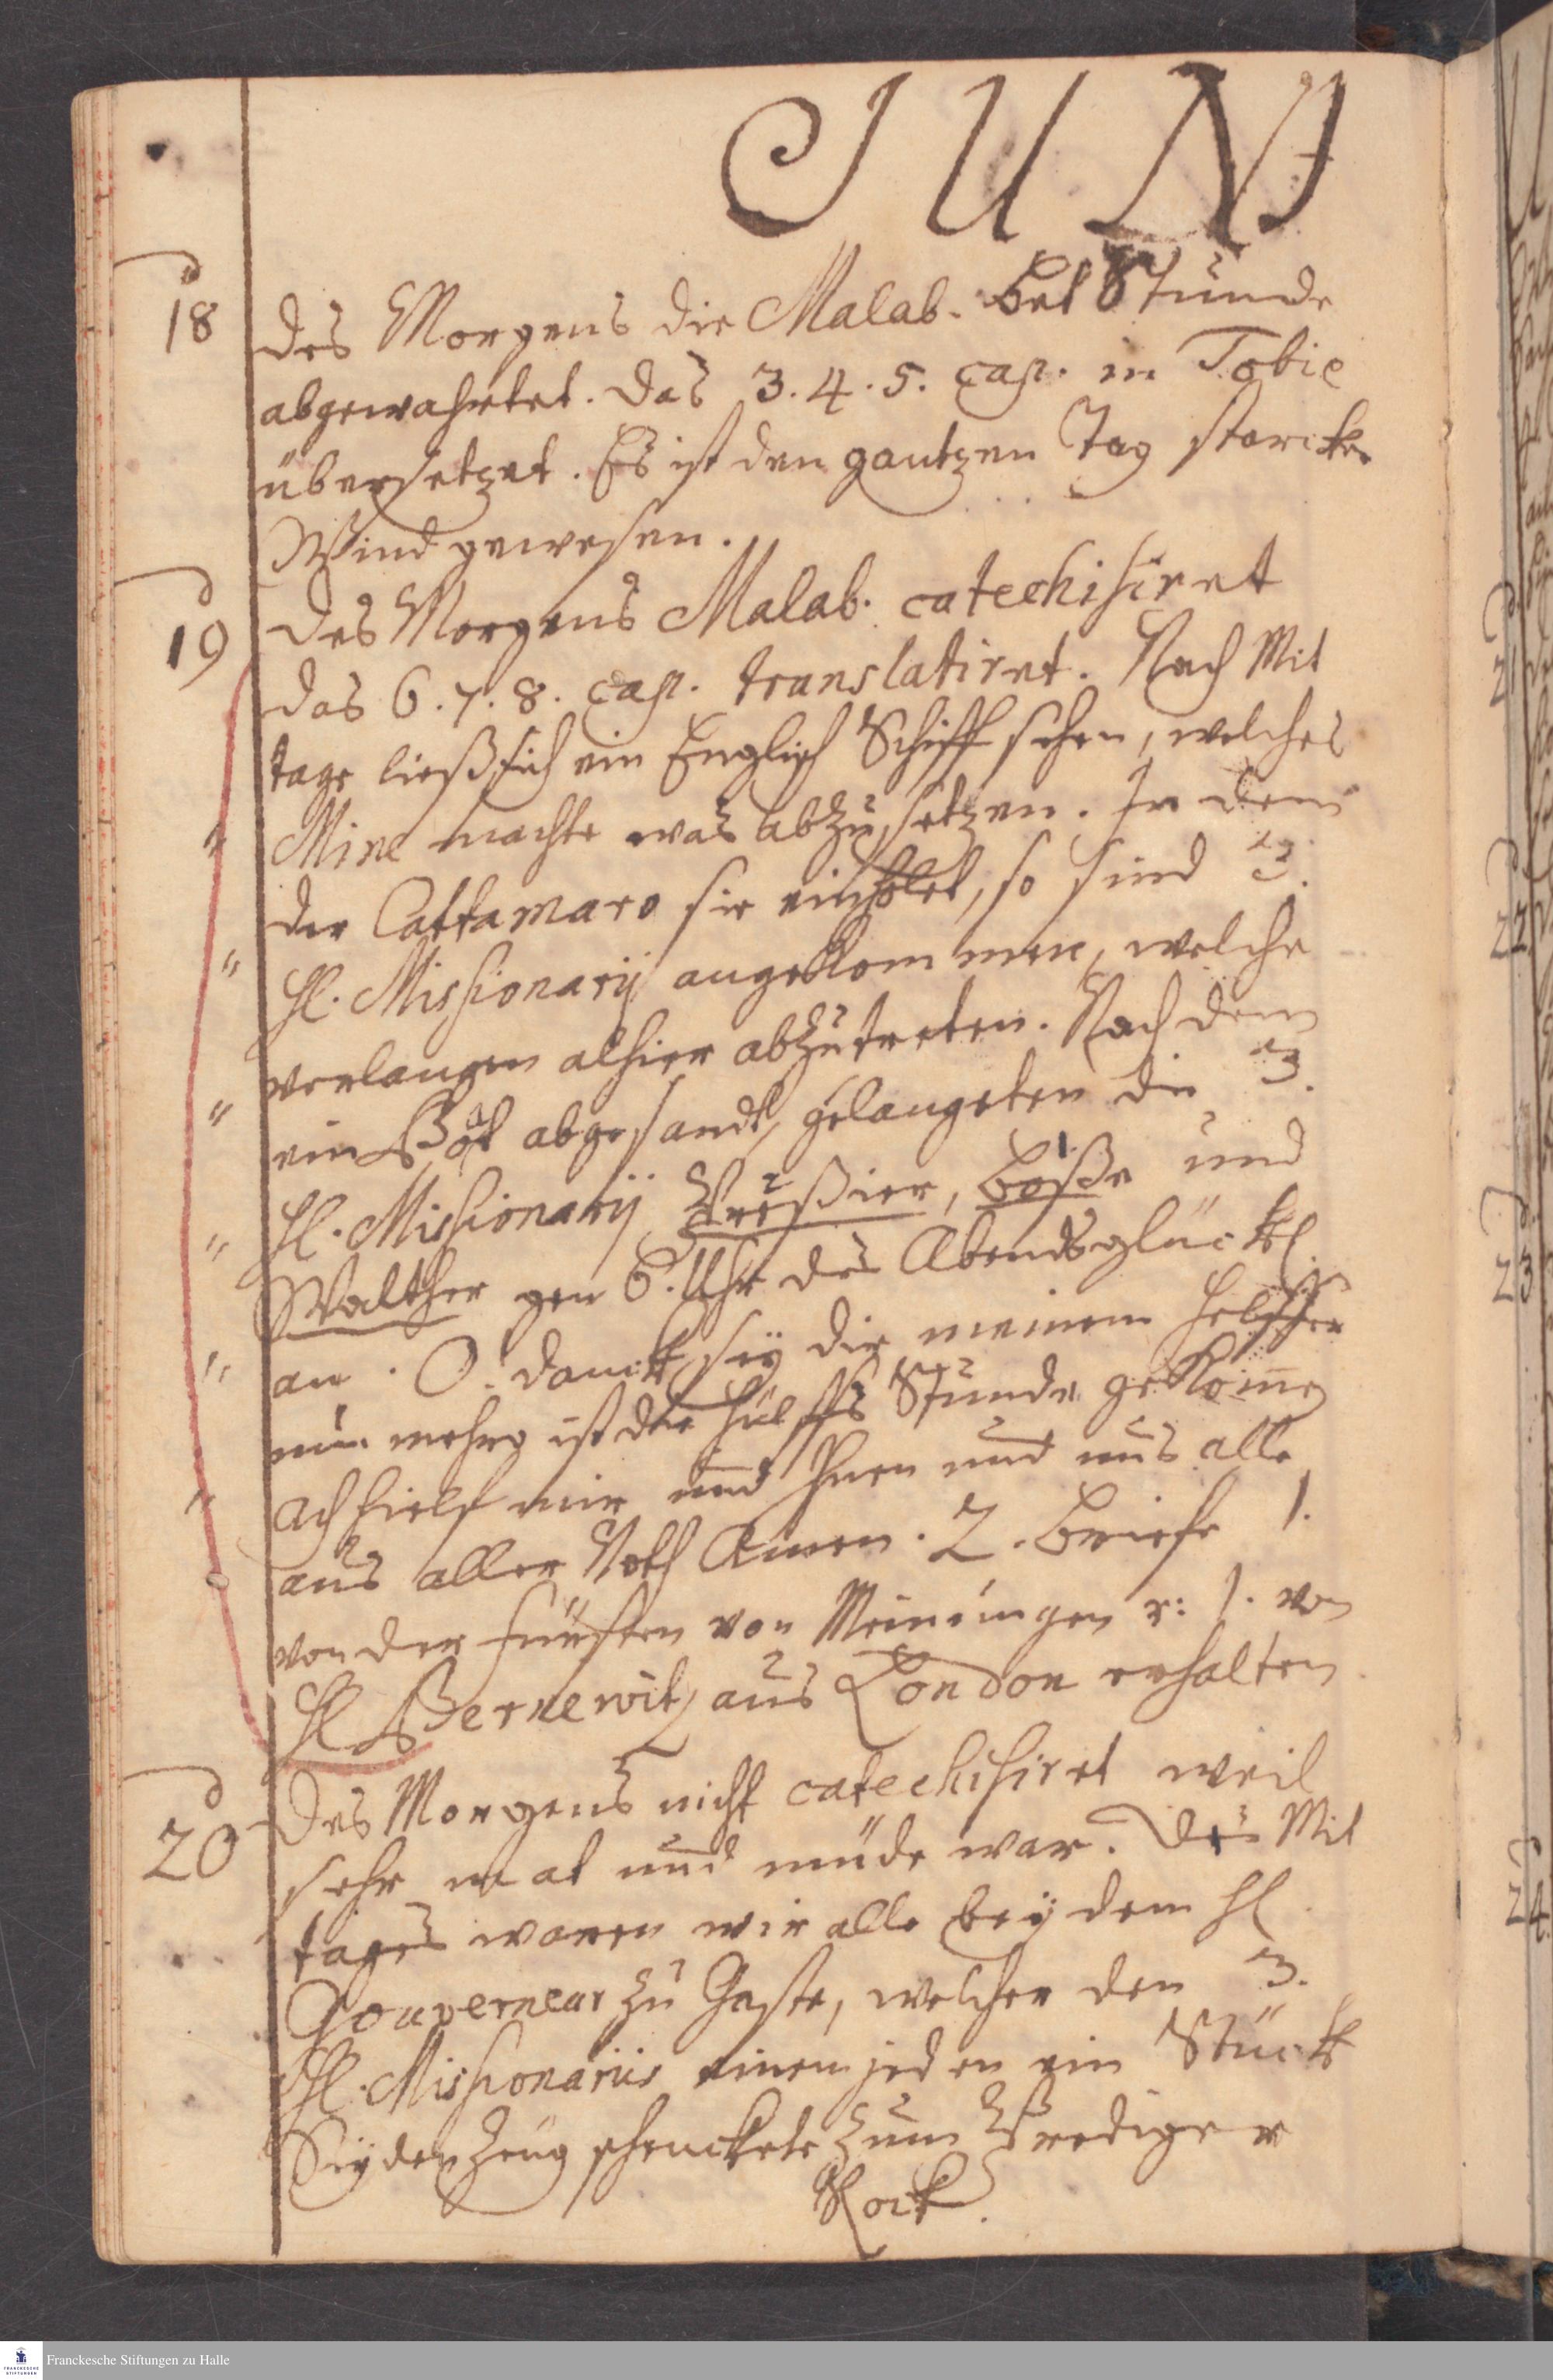 JUNI
18 des Morgens die Malab. Bet Stunde
abgewahrtet. das 3. 4. 5. cap. in Tobie
übersetzet. Es ist den gantzen Tag starcker
Wind gewesen.
19 des Morgens Malab. catechisiret
das 6. 7. 8. cap. translatiret. Nach Mit
tage ließ sich ein Englisch Schiff sehen, welches
Mine machte was abzusetzen. In dem
der Cattamaro sie einholet, so sind 3.
H. Missionarij angekommen, welche
verlangen alhier abzutreten. Nach dem
ein Bot abgesandt, gelangeten die 3.
H. Missionarij Preßier, Boße und
Walther gen 6. Uhr des Abends glückl.
an. O. danck sey dir meinem Helffer
nun mehro ist die Hülffs Stunde gekom̄en
ach hielf mir und Ihnen und uns alle
aus aller Noth Amen. 2. Briefe 1.
von der Fürsten von Meiningen r: 1. von
H Bernewitz aus London erhalten
20 des Morgens nicht catechisiret weil
sehr mat und müde war. Des Mit
tages waren wir alle bey dem H
Gouverneur zu Gaste, welcher den 3.
H. Missionariis einem jeden ein Stück
Seyden Zeug schenckete zum Prediger
Rock.
21
22
23
24
Franckesche Stiftungen zu Halle
FRANCKESCHE
STIFTUNGEN